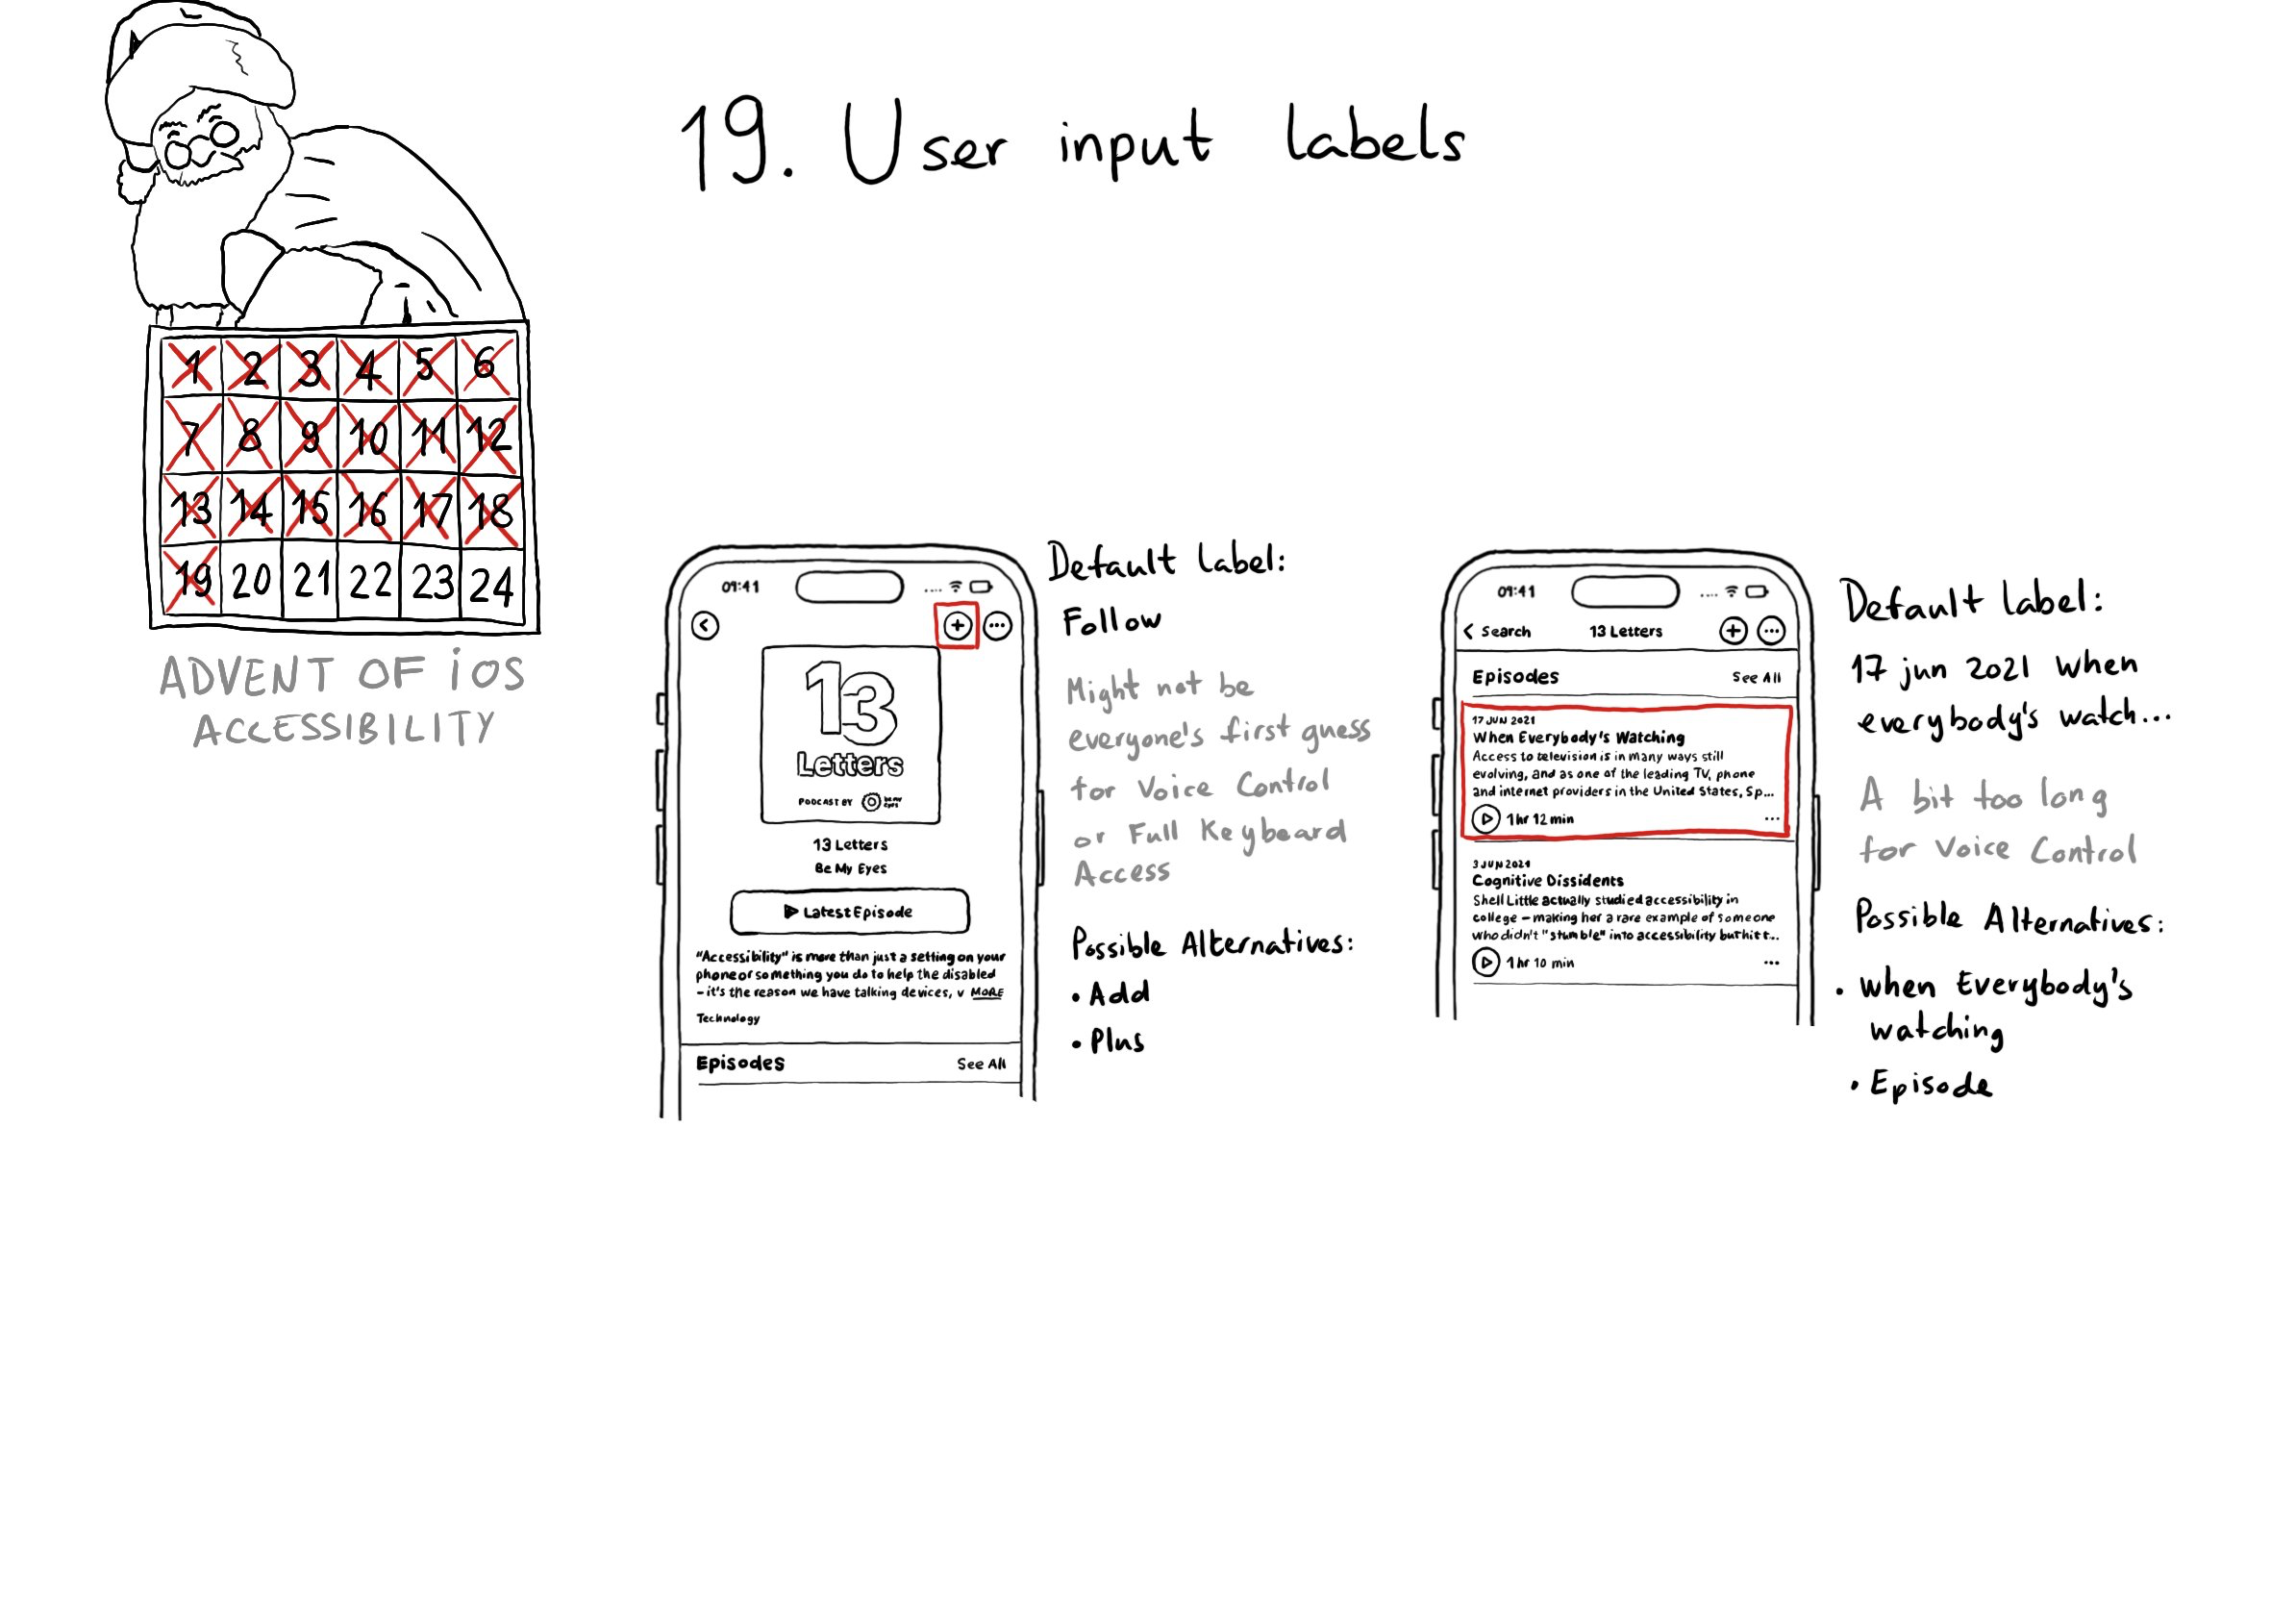 19. User input labels
1 2 3 4 5 6
7 8 9 10 11 12
13 14 15 16 17 18
19 20 21 22 23 24
ADVENT OF iOS
ACCESSIBILITY
09:41
13
Letters
PODCAST BY be my eyes
13 Letters
Be My Eyes
Latest Episode
"Accessibility" is more than just a setting on your
phone or something you do to help the disabled
– it's the reason we have talking devices, v MORE
Technology
Episodes See All
Default label:
Follow
Might not be
everyone's first guess
for Voice Control
or Full Keyboard
Access
Possible Alternatives:
• Add
• Plus
09:41
Search 13 Letters
Episodes See All
17 JUN 2021
When Everybody's Watching
Access to television is in many ways still
evolving, and as one of the leading TV, phone
and internet providers in the United States, Sp...
1 hr 12 min ...
3 JUN 2021
Cognitive Dissidents
Shell Little actually studied accessibility in
college – making her a rare example of someone
who didn't "stumble" into accessibility but hit t...
1 hr 10 min ...
Default label:
17 jun 2021 when
everybody's watch...
A bit too long
for Voice Control
Possible Alternatives:
• When Everybody's
watching
• Episode